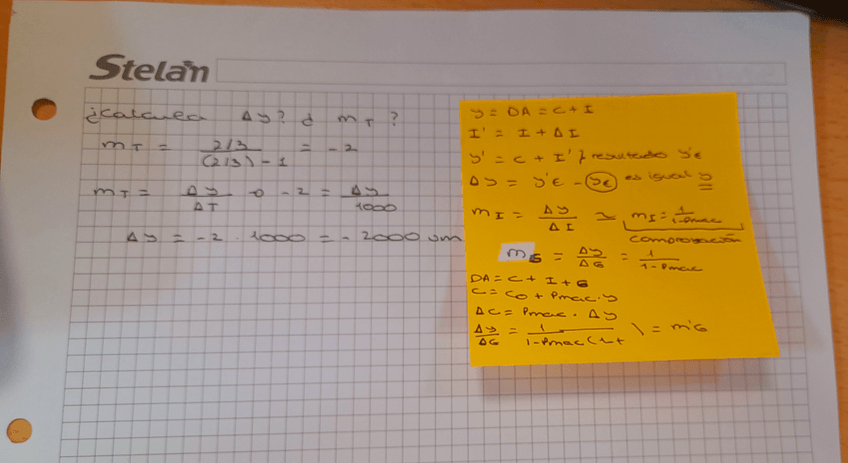 Stelan
¿Calculea Δy? ¿ mT ?
mT = 2/3 / (2/3) - 1 = -2
mT = Δy / ΔT → -2 = Δy / 1000
Δy = -2 · 1000 = -2000 um
y = DA = C + I
I' = I + ΔI
y' = C + I' } resultado y'E
Δy = y'E - yE es igual y
mI = Δy / ΔI ≃ mI = 1 / 1-Pmac
comprobación
mG = Δy / ΔG = 1 / 1-Pmac
DA = C + I + G
C = C0 + Pmac · y
ΔC = Pmac · Δy
Δy / ΔG = 1 / 1-Pmac (1-t ) = m'G